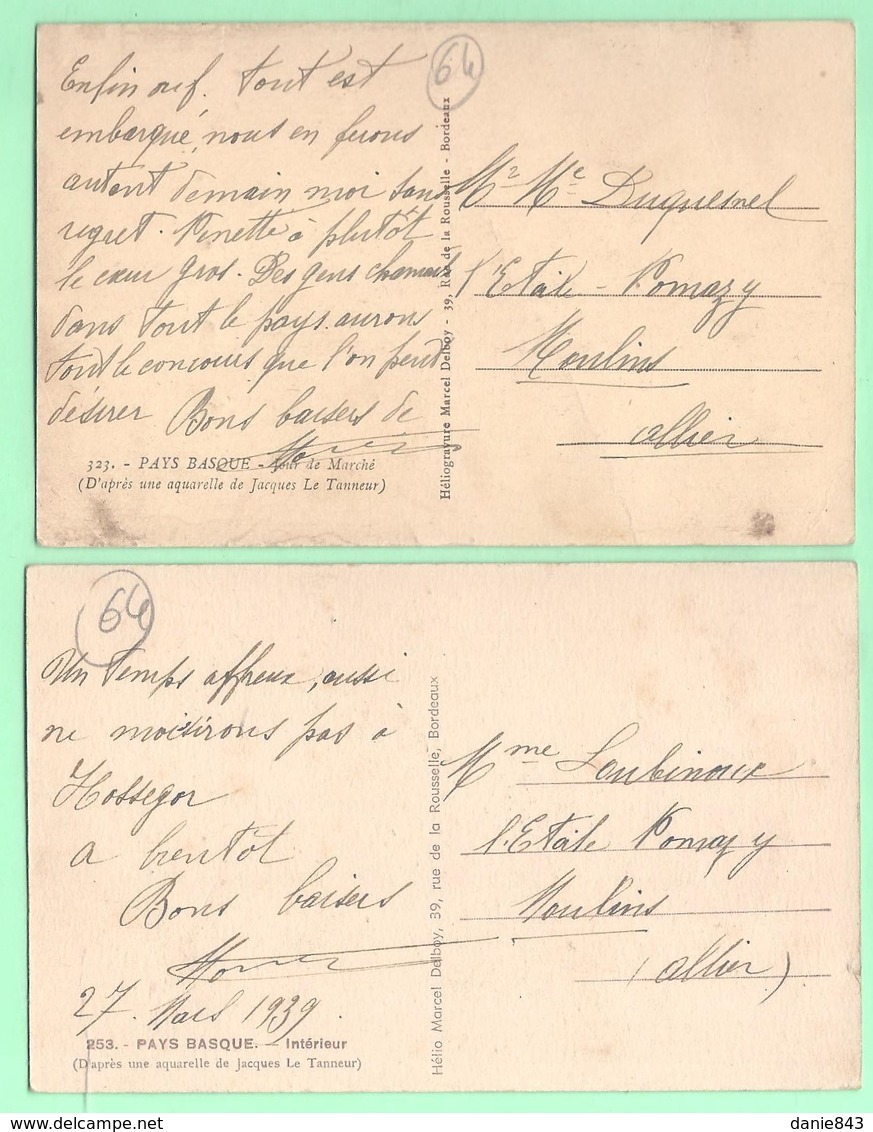 64
Enfin ouf. tout est
embarqué, nous en ferons
autant demain moi sans
regret. Ninette à plutôt
le cœur gros. Des gens charmants
dans tout le pays. aurons
tout le concours que l'on peut
désirer Bons baisers de
323. - PAYS BASQUE - Jour de Marché
(D'après une aquarelle de Jacques Le Tanneur)
Héliogravure Marcel Delboy - 39, Rue de la Rousselle - Bordeaux
Mr Me Duquesnel
l'Etoile - Pomazy
Moulins
Allier
64
Un temps affreux, aussi
ne moisirons pas à
Hossegor
A bientôt
Bons baisers
27 Mars 1939.
253. - PAYS BASQUE. — Intérieur
(D'après une aquarelle de Jacques Le Tanneur)
Hélio Marcel Delboy, 39, rue de la Rousselle, Bordeaux
Mme Loubinoux
l'Etoile Pomazy
Moulins
(Allier)
danie843